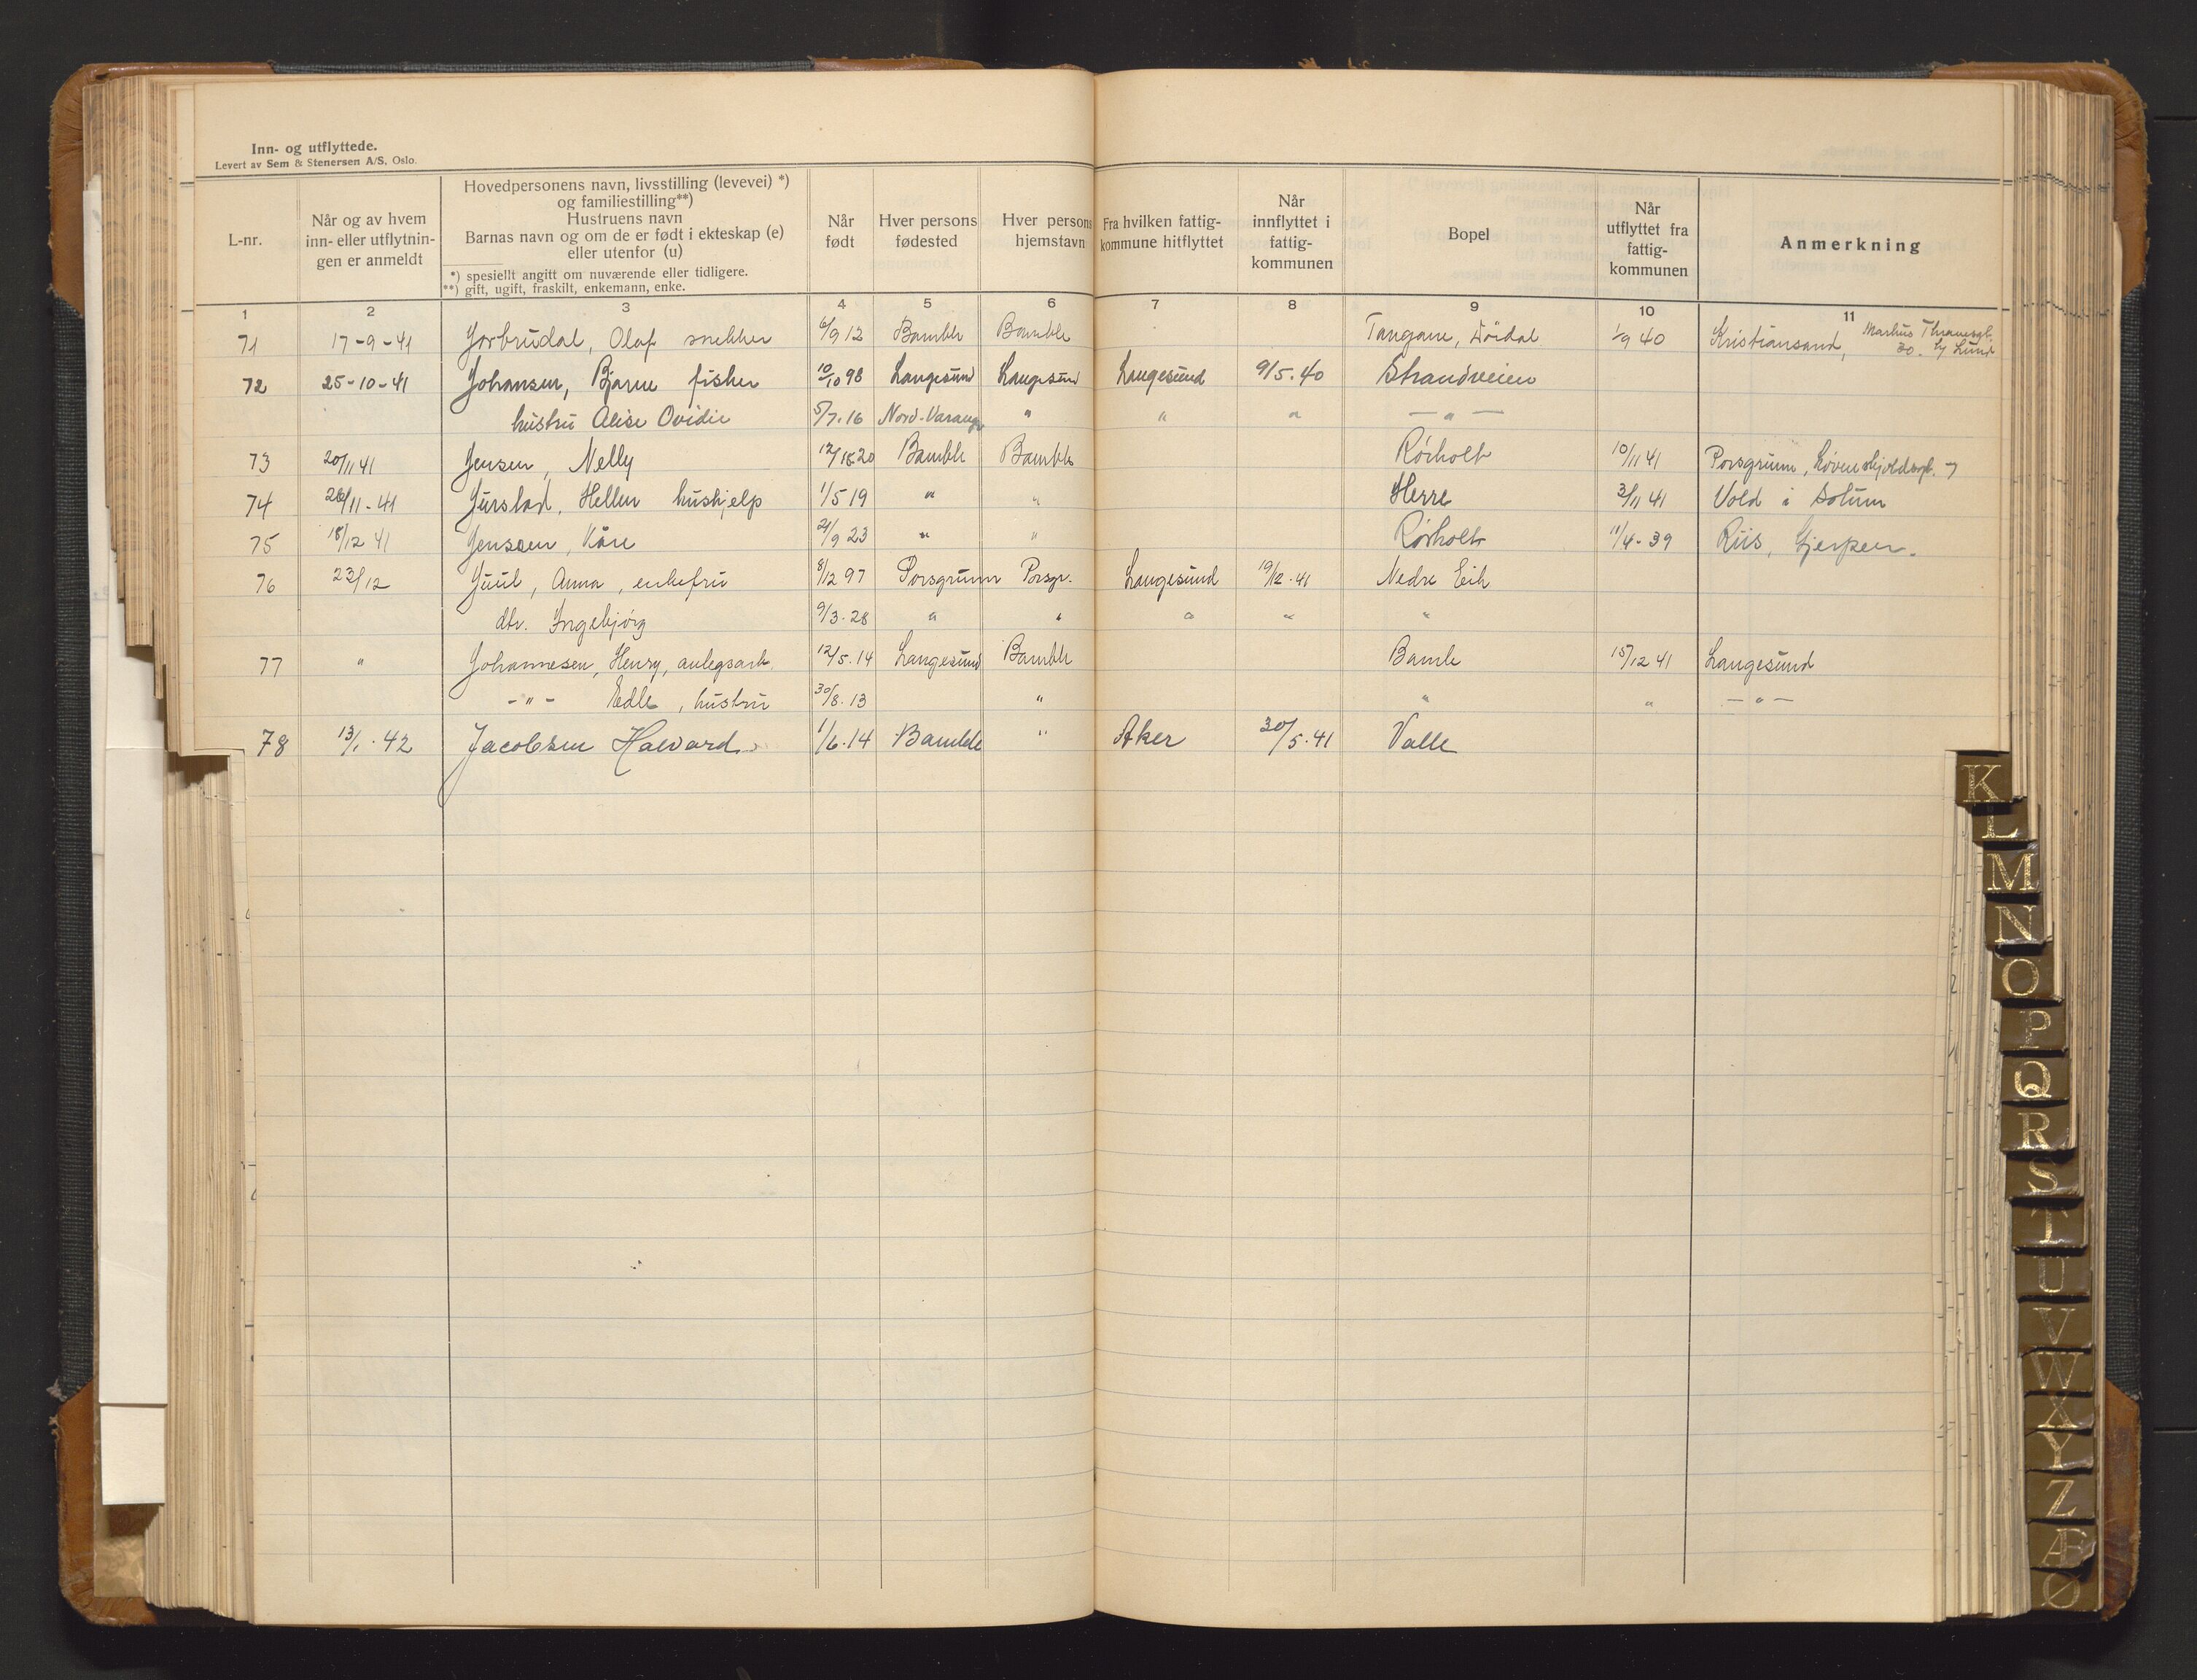 Inn- og utflyttede.
Levert av Sem & Stenersen A/S, Oslo.
L-nr.
Når og av hvem
inn- eller utflytnin-
gen er anmeldt
Hovedpersonens navn, livsstilling (levevei) *)
og familiestilling**)
Hustruens navn
Barnas navn og om de er født i ekteskap (e)
eller utenfor (u)
*) spesiellt angitt om nuværende eller tidligere.
**) gift, ugift, fraskilt, enkemann, enke.
Når
født
Hver persons
fødested
Hver persons
hjemstavn
Fra hvilken fattig-
kommune hitflyttet
Når
innflyttet i
fattig-
kommunen
Bopel
Når
utflyttet fra
fattig-
kommunen
Anmerkning
1 2 3 4 5 6 7 8 9 10 11
71 17-9-41 Jorbrudal, Olaf snekker 6/9 12 Bamble Bamble Tangane, Dørdal 1/9 40 Kristiansand, Markus Thranesgt. 30 Lund
72 25-10-41 Johansen, Bjarne fisker 10/10 98 Langesund Langesund Langesund 9/5.40 Strandveien
hustru Alise Ovidie 5/7.16 Nord-Varanger " " " — " —
73 20/11 41 Jensen, Nelly 20 Bamble Bamble Rørholt 10/11 41 Porsgrunn, Løvenskjoldsgt. 7
74 26/11-41 Jurstad, Hellen hushjelp 1/5 19 " " Herre 3/11 41 Vold i Solum
75 18/12 41 Jenssen, Kåre 21/9 23 " " Rørholt 11/4-39 Riis, Gjerpen.
76 23/12 Juul, Anna, enkefru 8/12 97 Porsgrunn Porsgr. Langesund 19/12.41 Nedre Eik
dtr. Ingebjørg 9/3.28 " " " " "
77 " Johannesen, Henry, anlegsarb. 12/5.14 Langesund Bamble Bamle 15/12 41 Langesund
- " - Edle, hustru 30/8.13 " " " — " —
78 13/1.42 Jacobsen Halvard 1/6.14 Bamble " Aker 30/5.41 Valle
K
L
M
N
O
P
Q
R
S
T
U
V
W
X
Y
Z
Æ
Ø